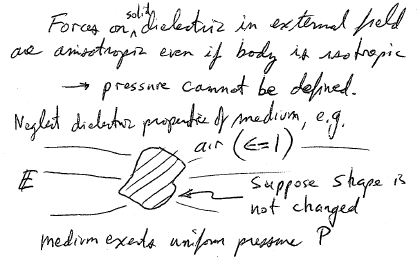 Forces on solid dielectric in external field
are anisotropic even if body is isotropic
→ pressure cannot be defined.
Neglect dielectric properties of medium, e.g.
air (ϵ=1)
E
suppose shape is
not changed
medium exerts uniform pressure P